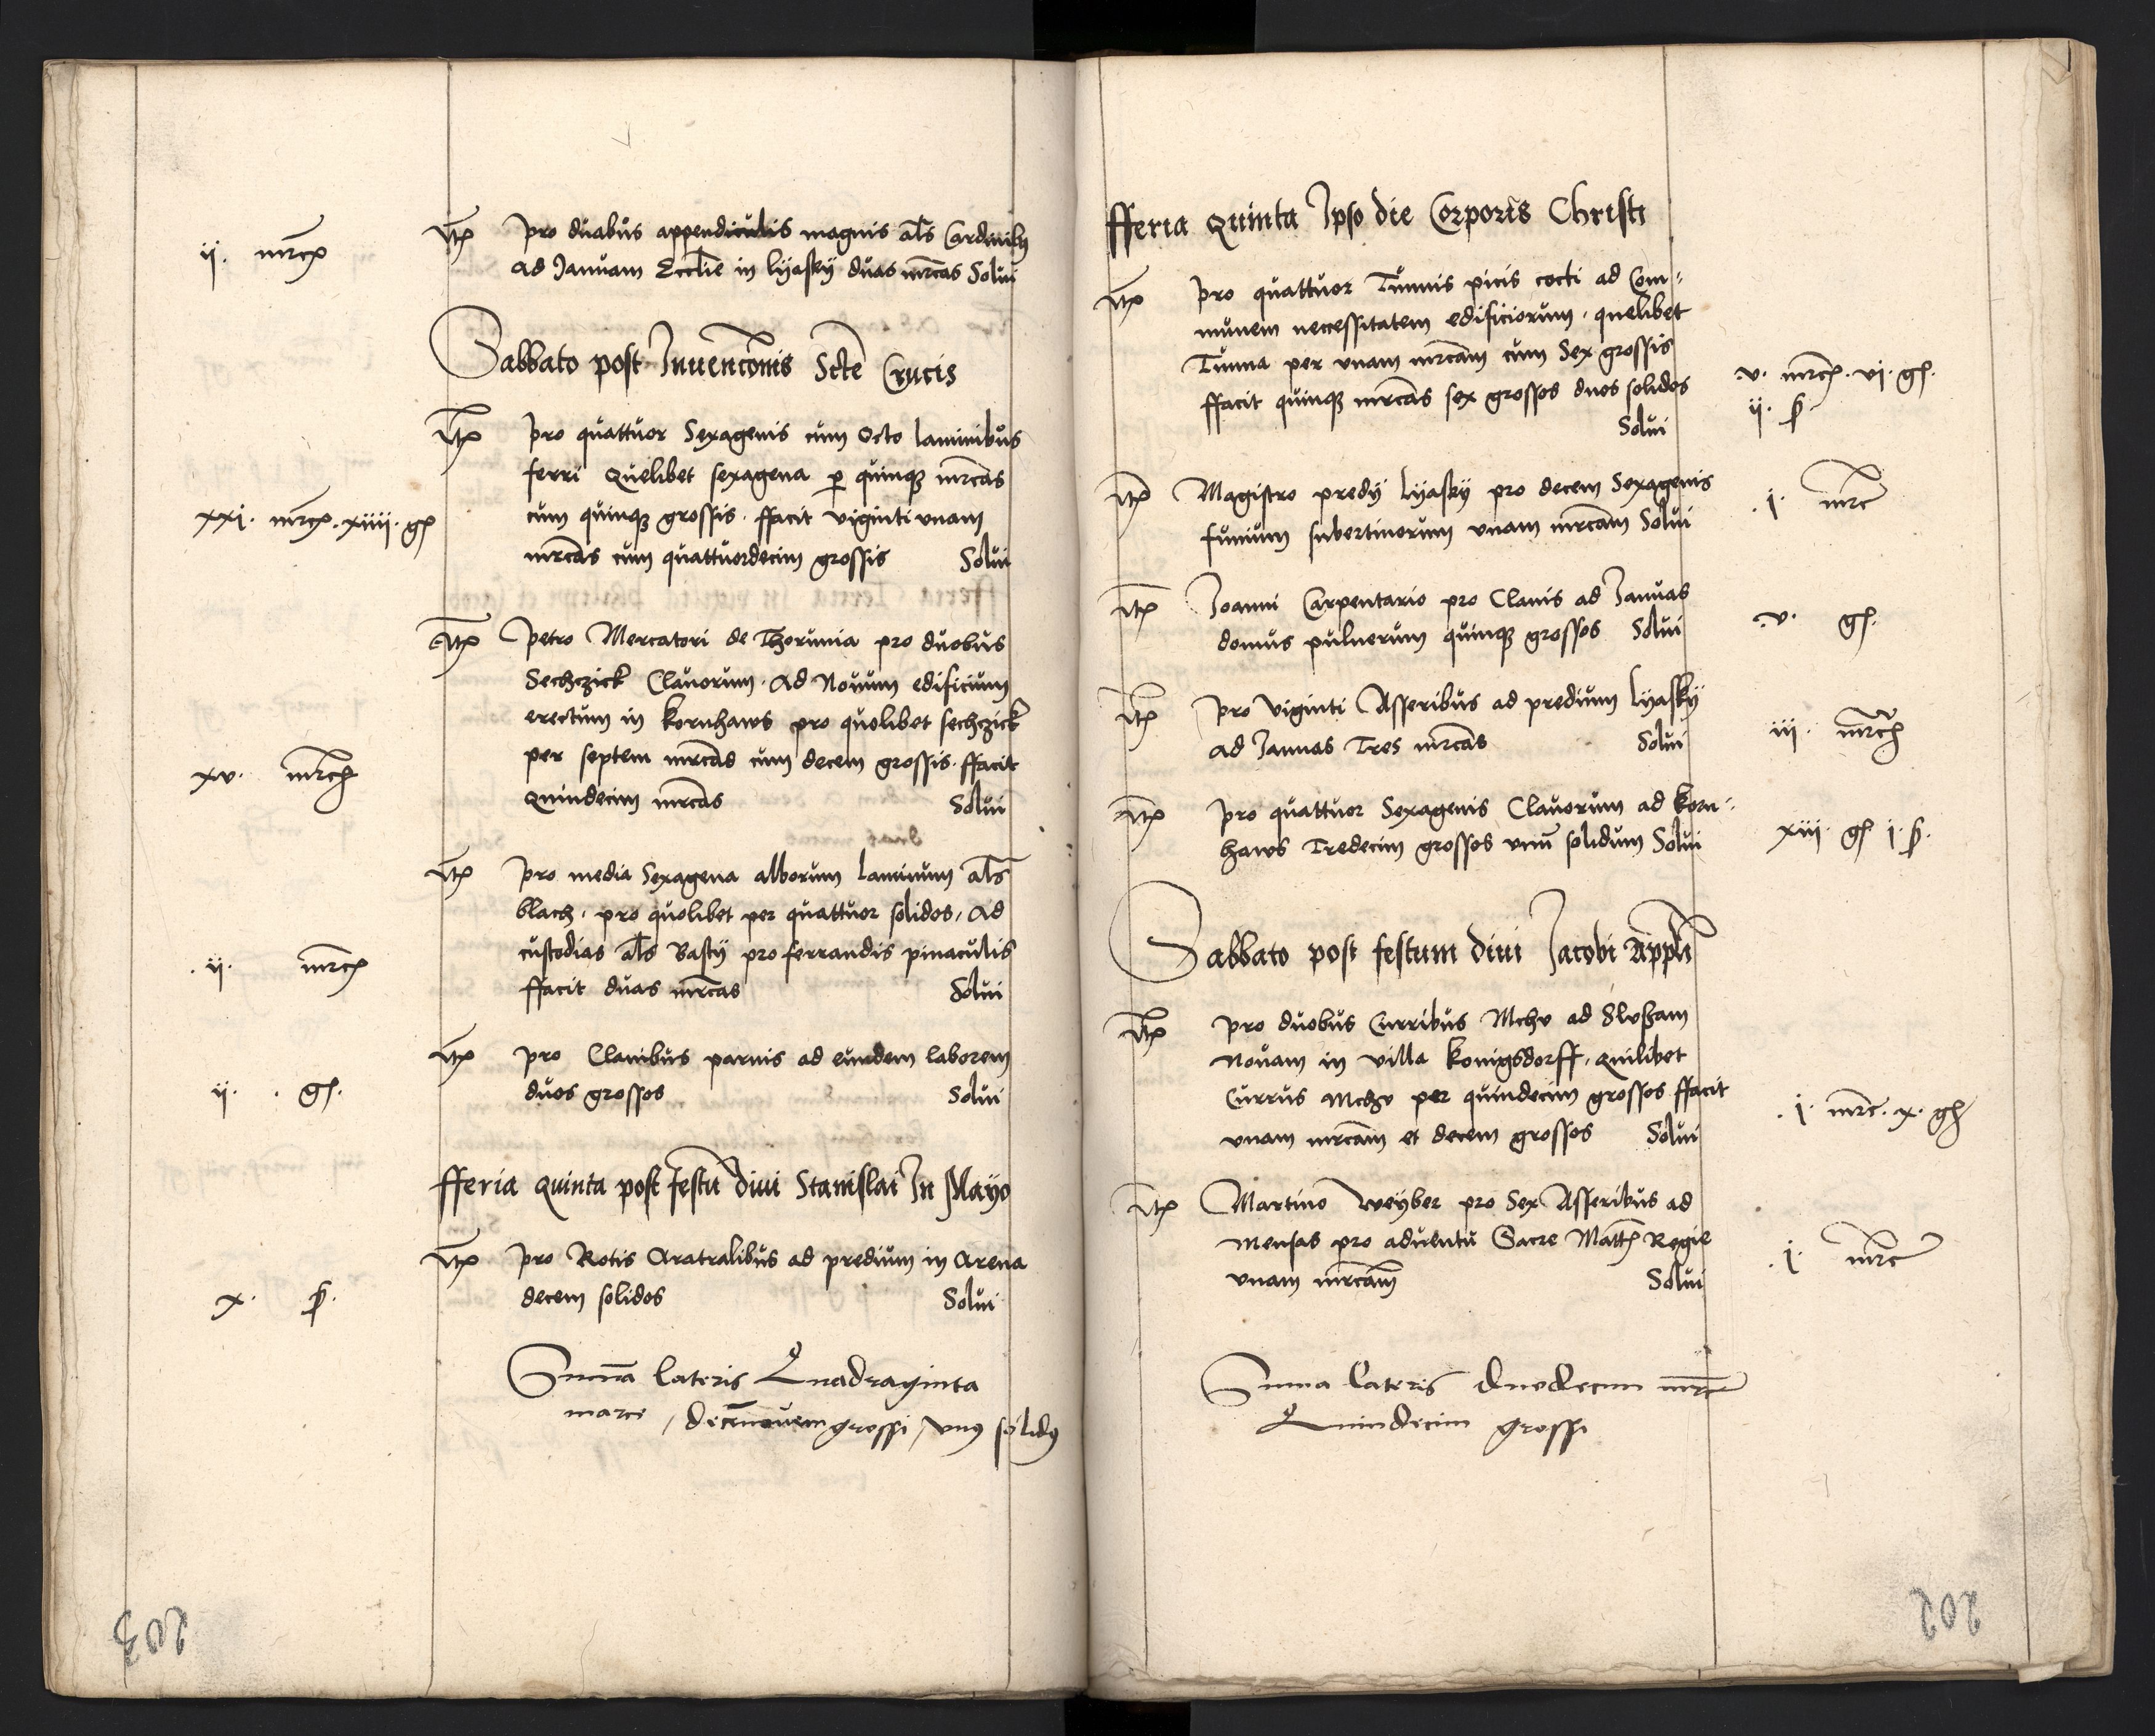 ii. mrcs Itm pro duabus appendiculis magnis als
ad Januam Ecclie in lyasky duas mrcas Solui
Sabbato post Inuenconis Scte Crucis
Itm pro quattuor Sexagenis cum Octo laminibus
ferri Quelibet sexagena p quinqz mrcas
xxi. mrcs. xiiii. gs cum quinqz grossis. ffacit viginti vnam
mrcas cum quattuordecim grossis Solui
Itm Petro Mercatori de Thorunia pro duobus
Sechczick Clauorum. Ad Nouum edificium
erectum in kornhaws pro quolibet sechczick
xv. mrcs per septem mrcas cum decem grossis. ffacit
Quindecim mrcas Solui
Itm pro media Sexagena alborum laminum als
blach. pro quolibet per quattuor solidos, Ad
ii. mrcs custodias als Basty pro ferrandis pinaculis
ffacit duas mrcas Solui
Itm pro Clauibus paruis ad eundem laborem
ii. gs. duos grossos Solui
fferia quinta post festu diui Stanislai In Mayo
Itm pro Rotis Aratralibus ad predium in Arena
x. s. decem solidos Solui
Suma lateris Quadraginta
marce, decemnouem grossi, vnus solidus
203
fferia Quinta Ipso die Corporis Christi
Itm pro quattuor Tunnis picis cocti ad Com-
munem necessitatem edificiorum. quelibet
Tunna per vnam mrcam cum Sex grossis
ffacit quinqz mrcas sex grossos duos solidos .v. mrcs. vi. gs.
Solui ii. s
Itm Magistro predy lyasky pro decem Sexagenis
funium subertinorum vnam mrcam Solui .i. mrc
Itm Joanni Carpentario pro Clauis ad Januas
domus puluerum quinqz grossos Solui .v. gs.
Itm pro viginti Asseribus ad predium lyasky
ad Januas Tres mrcas Solui iii. mrcs
Itm pro quattuor Sexagenis Clauorum ad korn-
haws Tredecim grossos vnu solidum Solui xiii. gs i. s.
Sabbato post festum diui Jacobi Appli
Itm pro duobus Curribus Mchv ad Slvsam
Nouam in villa konigsdorff. quilibet
Currus Mchv per quindecim grossos ffacit
vnam mrcam et decem grossos Solui .i. mrc. x. gs
Itm Martino Weyber pro Sex Asseribus ad
Mensas pro aduentu Sacre Mattis Regie
vnam mrcam Solui .i. mrc
Suma lateris duodecim mrce
Quindecim grossi
202